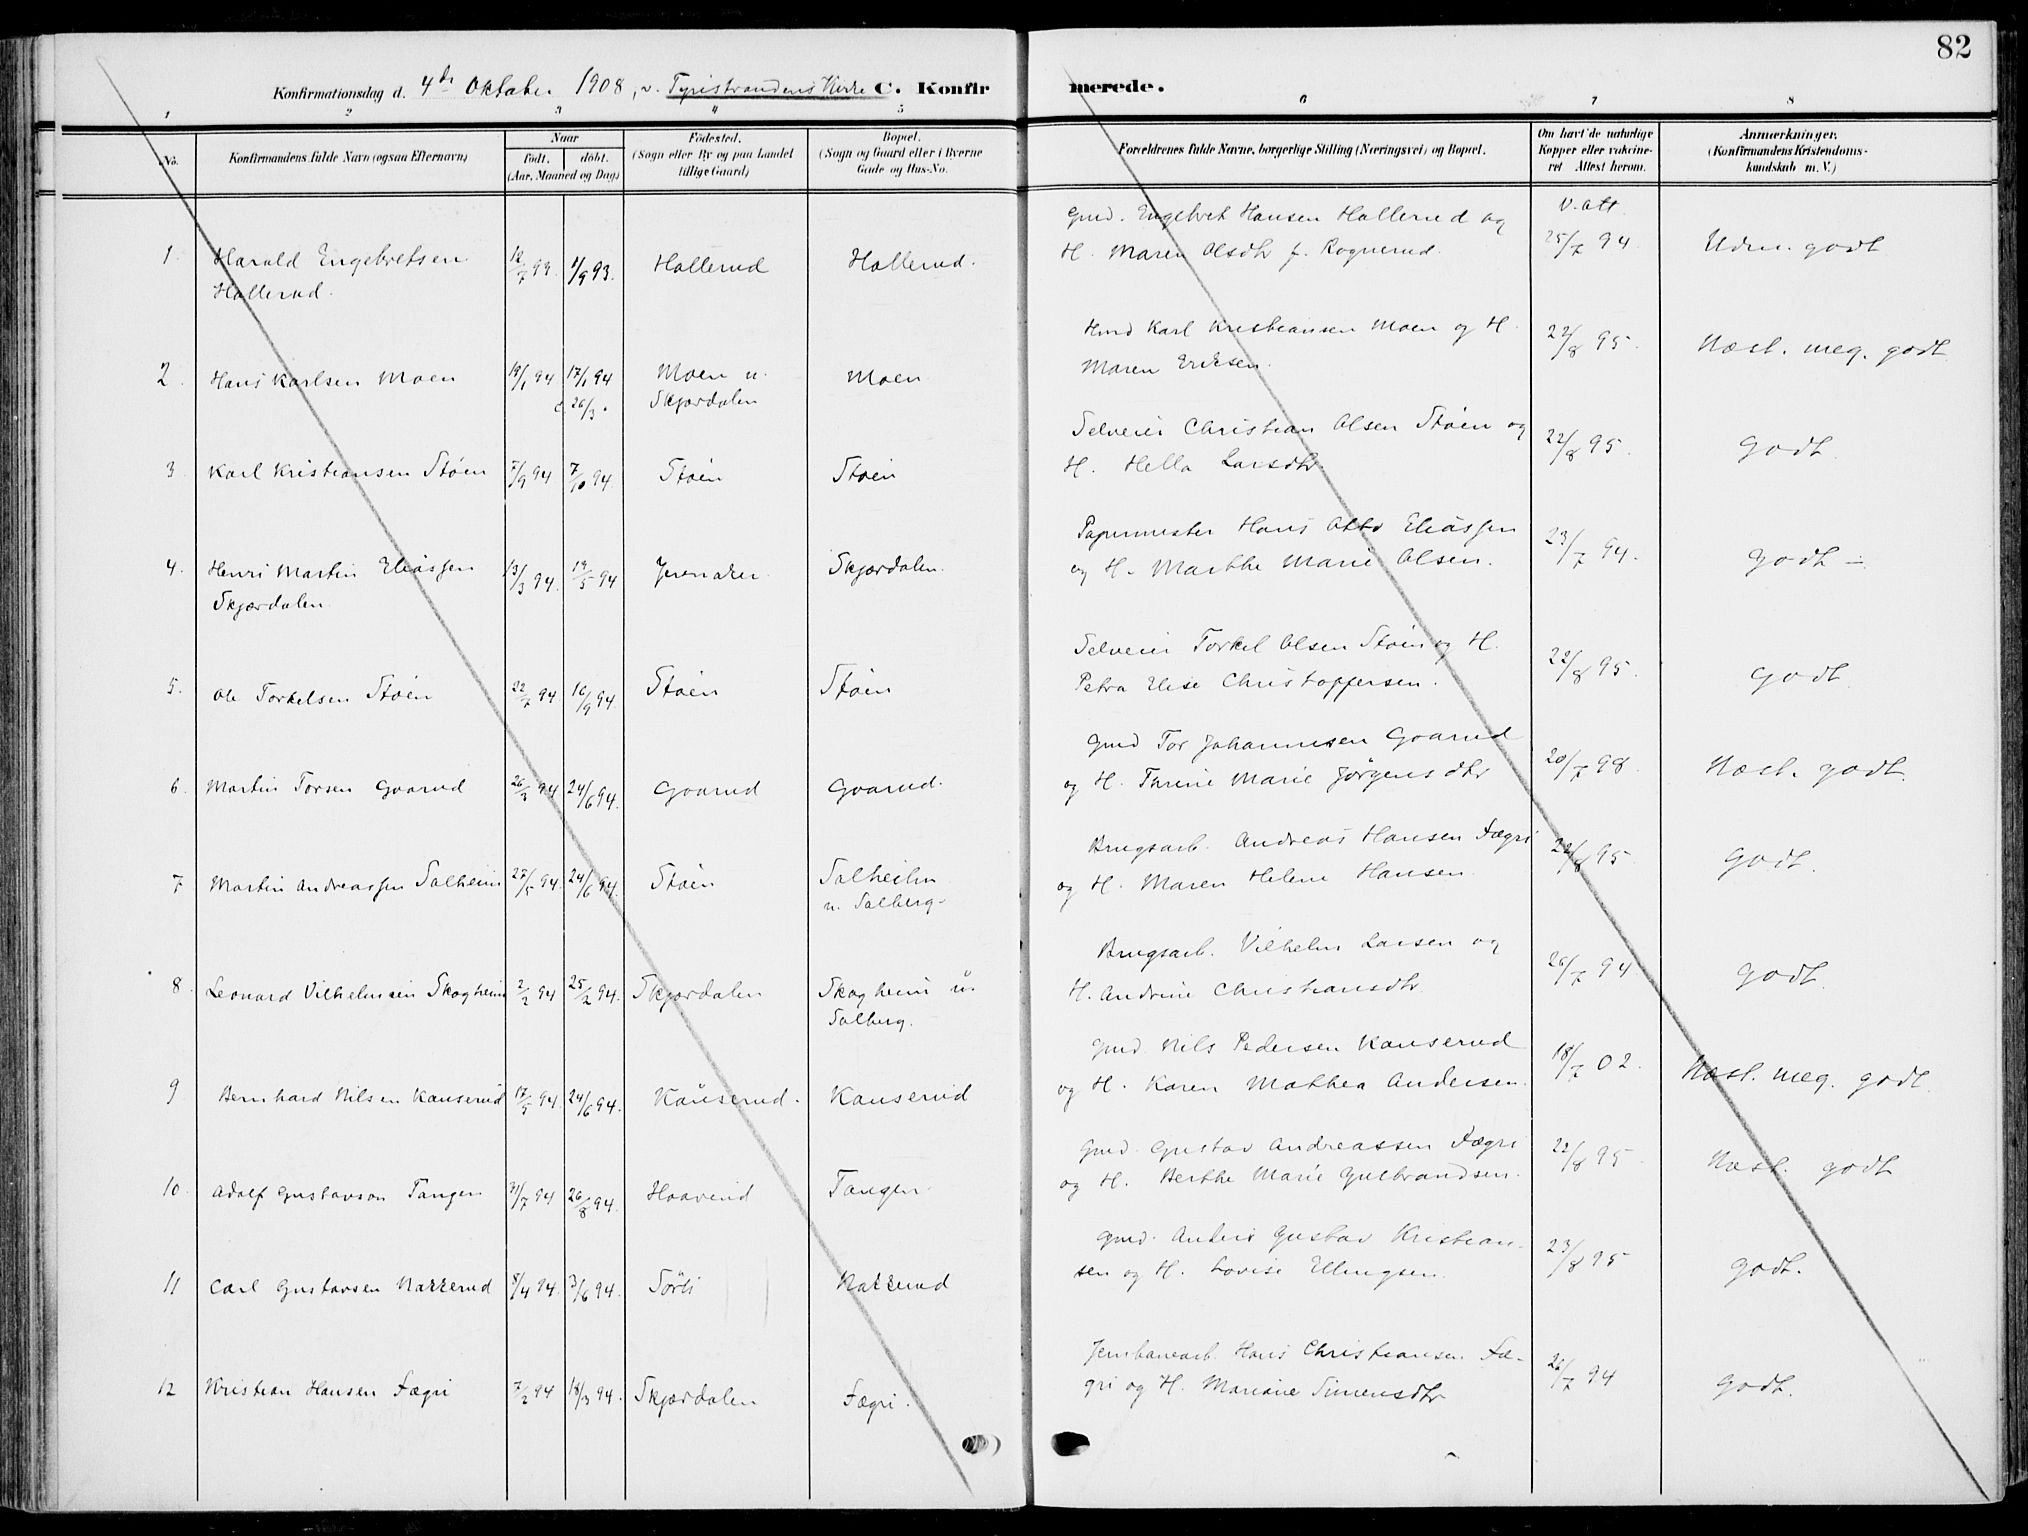 82
Konfirmationsdag d. 4de Oktober 1908, v. Tyristrandens Kirke C. Konfirmerede.
1 2 3 4 5 6 7 8
No.
Konfirmandens fulde Navn (ogsaa Efternavn)
Naar
født. døbt.
(Aar, Maaned og Dag)
Fødested.
(Sogn eller By og paa Landet
tillige Gaard)
Bopæl.
(Sogn og Gaard eller i Byerne
Gade og Hus-No.
Forældrenes fulde Navne, borgerlige Stilling (Næringsvei) og Bopæl.
Om havt de naturlige
Kopper eller vakcine-
ret Attest herom.
Anmærkninger.
(Konfirmandens Kristendoms-
kundskab m. V.)
v. att.
Gmd. Engebret Hansen Hallerud og
1. Harald Engebretsen 12/7 93. 1/9 93. Hallerud Hallerud. H. Maren Olsdtr f. Rognerud. 25/7 94. Udm. godt
Hallerud.
Hmd Karl Kristiansen Moen og H.
2. Hans Karlsen Moen 19/1 94 17/1 94 Moen u. Moen. Maren Eriksen. 22/8 95. Næst. meg. godt
26/3. Skjærdalen
Selveier Christian Olsen Støen og
3. Karl Kristiansen Støen 7/9 94 7/10 94. Støen Støen H. Hella Larsdtr. 22/8 95. Godt.
Papirmester Hans Otto Eliassen
4. Henri Martin Eliassen 13/3 94. 19/5 94 Jevnaker. Skjærdalen. og H. Marthe Marie Olsen. 23/7 94. Godt –
Skjærdalen.
Selveier Torkel Olsen Støen og H.
5. Ole Torkelsen Støen 22/7 94 16/9 94. Støen Støen Petra Elise Christoffersen. 22/8 95. Godt
Gmd Tor Johannesen Goarud
6. Martin Torsen Goarud 26/3 94 24/6 94. Goarud Goarud. og H. Thrine Marie Jørgensdtr 20/7 98. Næst. godt.
Brugsarb. Andreas Hansen Fægri
7 Martin Andreassen Solheim 27/5 94. 24/6 94. Støen Solheim og H. Maren Helene Hansen. 22/8 95. Godt.
u. Solberg.
Brugsarb. Vilhelm Larsen og
8. Leonard Vilhelmsen Skogheim 2/2 94 25/2 94. Skjærdalen Skogheim u. H. Andrine Christiansdtr 26/7 94 Godt.
Solberg.
Gmd. Nils Pedersen Kanserud
9 Bernhard Nilsen Kanserud 17/5 94. 24/6 94. Kanserud. Kanserud og H. Karen Mathea Andersen. 18/7 02. Næst. meg. godt.
Gmd. Gustav Andreassen Fægri
10. Adolf Gustavson Tangen 31/7 94 26/8 94. Haaverud Tangen. og H. Berthe Marie Gulbrandsen. 22/8 95. Næst. godt
Gmd. Anders Gustav Kristian-
11 Carl Gustavsen Nakkerud 8/4 94. 3/6 94. Sørli Nakkerud sen og H. Lovise Ellingsen. 23/8 95 Godt.
Jernbanearb. Hans Christiansen Fæ-
12 Kristian Hansen Fægri 7/2 94 18/3 94. Skjærdalen Fægri. gri og H. Mariane Simensdtr 26/7 94 Godt.